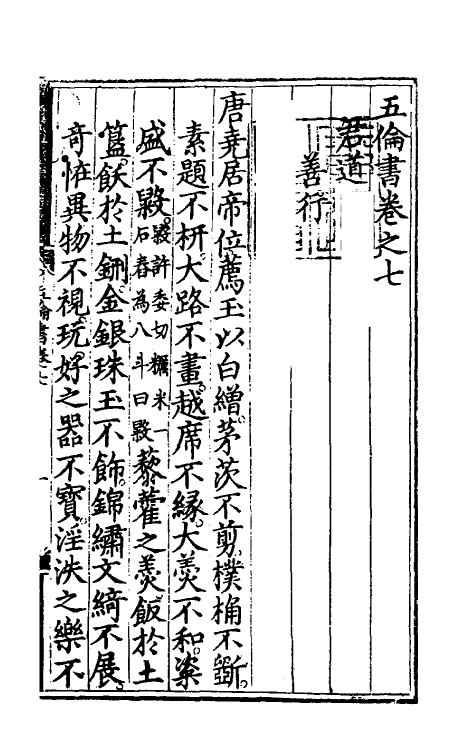 五倫書卷之七
君道
善行
唐堯居帝位薦玉以白繒茅茨不剪樸桷不斵
素題不枅大路不畫越席不緣大羹不和粢
盛不毇毇許委切糲米一石舂為八斗曰毇藜藿之羮飯於土
簋飫於土鉶金銀珠玉不飾錦繡文綺不展
竒恠異物不視玩好之器不寶淫泆之樂不